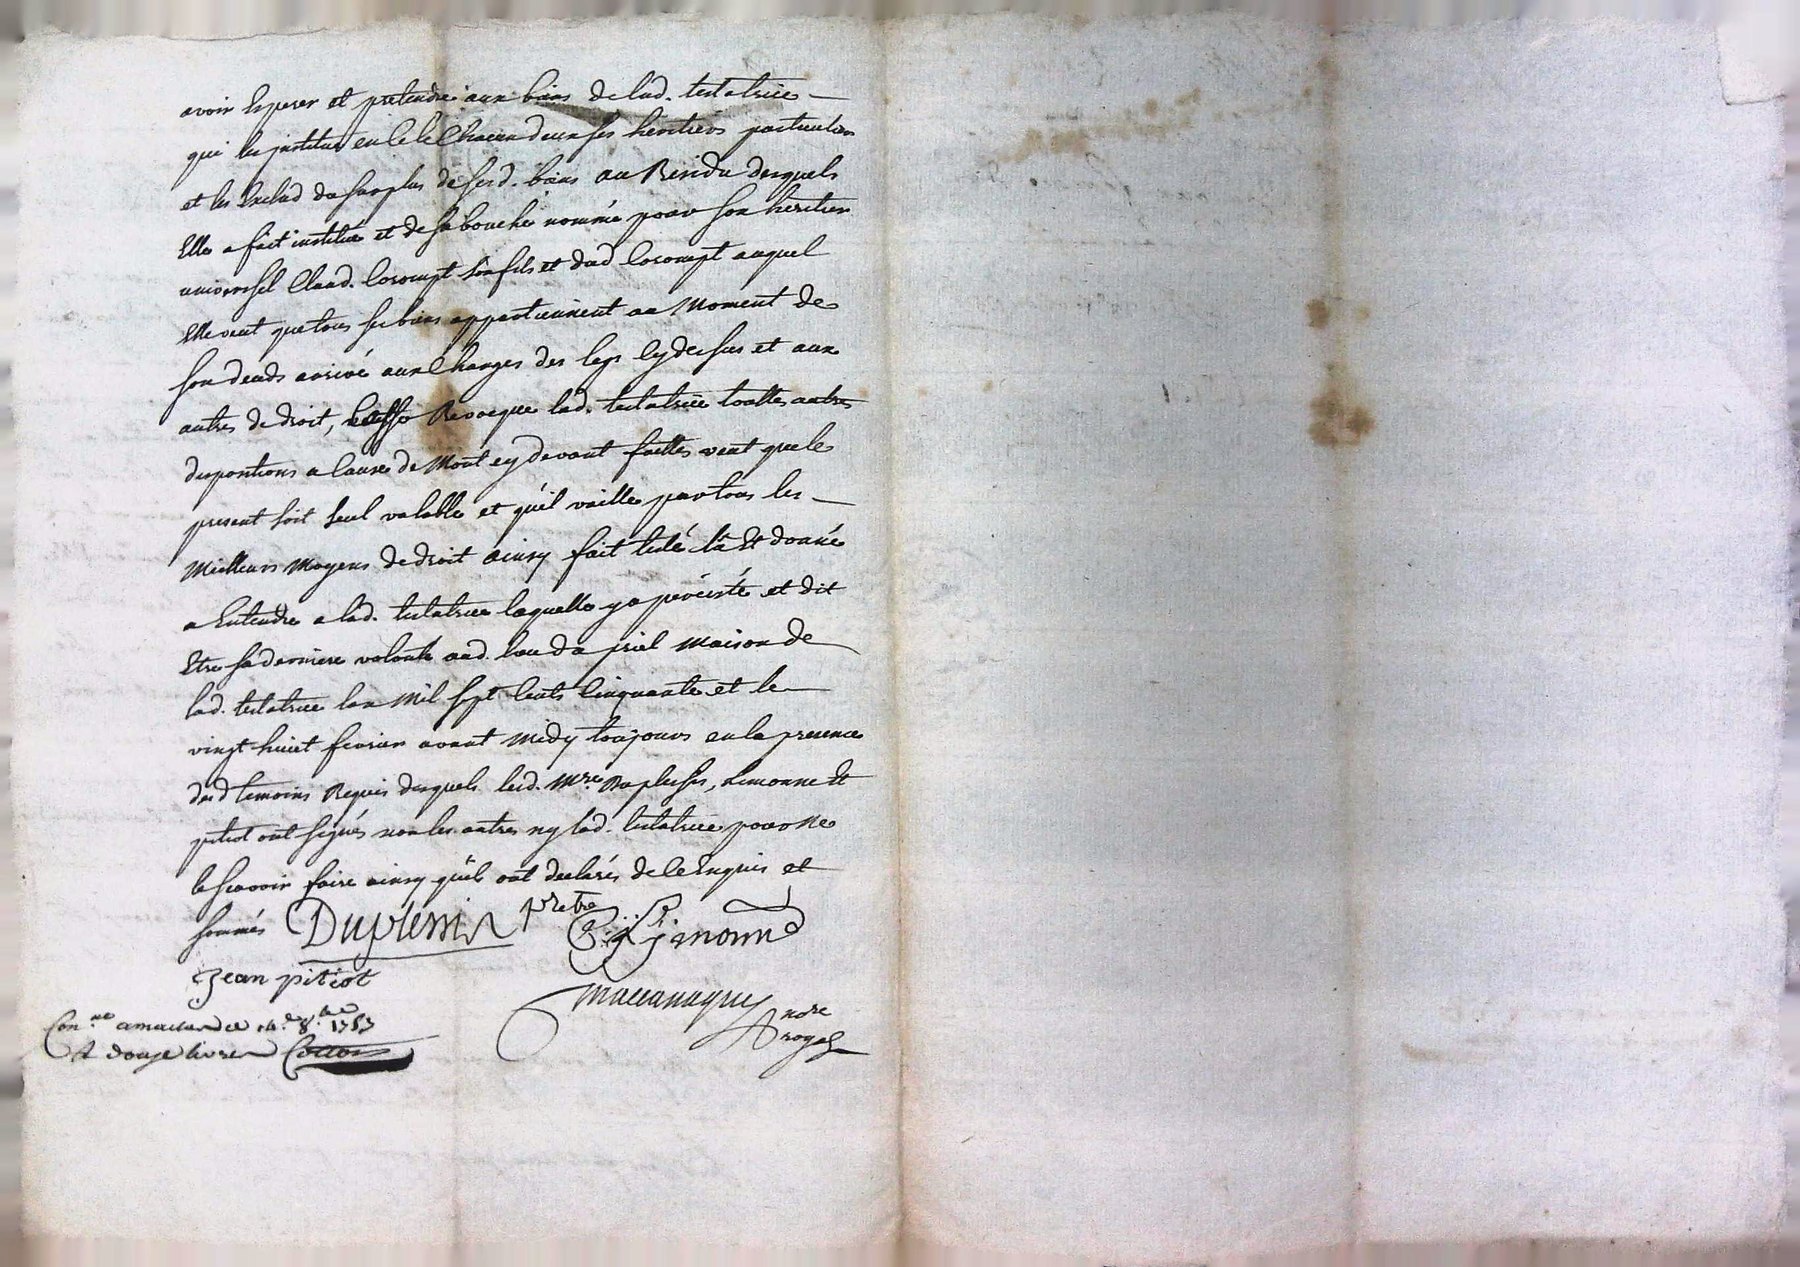 avoir Esperer et pretendre aux biens de lad. testatrice
qui les institue en ce le Chacun deux ses heritiers particuliers
et les Exclud du surplus de sesd. biens au Residu desquels
Elle a fait institué et de sa bouche nommé pour son heritier
universel Claud. son fils et dud auquel
Elle veut que tous ses biens appartiennent au Moment de
son deceds arrivé aux Charges des legs cy dessus et aux
autres de droit, Revoque lad. testatrice touttes autres
dispositions a Cause de Mort cy devant faittes veut que le
present soit seul valable et qu'il vaille par tous les
Meilleurs Moyens de droit ainsy fait testé lû Et donné
a Entendre a lad. testatrice laquelle y a percisté et dit
Etre sa derniere volonté aud. lieu maison de
lad. testatrice l'an Mil sept Cents Cinquante et le
vingt huict fevrier avant Midy toujours en la presence
desd temoins Requis desquels lesd. Mre Duplessis, Simonne Et
pitiot ont signés non les autres ny lad. testatrice pour Ne
le sçavoir faire ainsy qu'ils ont declarés de ce Enquis et
sommés Duplessis pretre Simonne
Jean pitiot
nore
royal
Con.ne a le 14.e 8.bre 1753
R douze livres